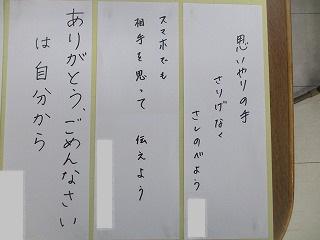 思いやりの手
さりげなく
さしのべよう
スマホでも
相手を思って 伝えよう
ありがとう、ごめんなさい
は自分から